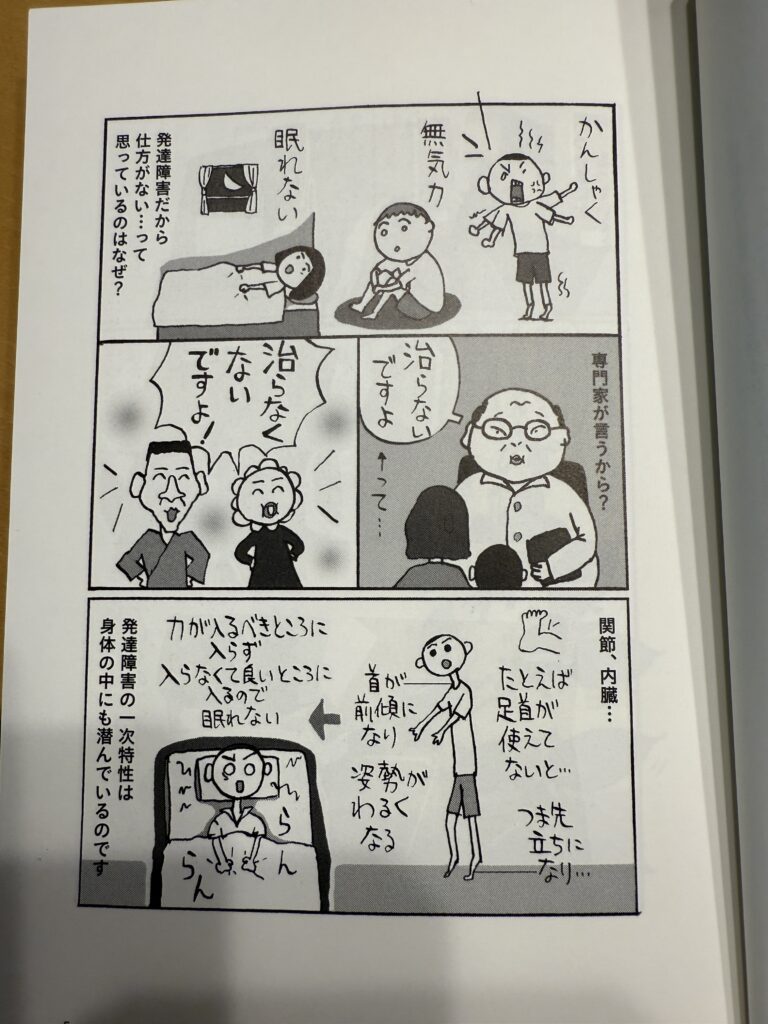 かんしゃく
無気力
眠れない
発達障害だから
仕方がない…って
思っているのはなぜ？
専門家が言うから？
治らない
ですよ
↑って…
治らなく
ない
ですよ！
関節、内臓…
たとえば
足首が
使えて
ないと…
つま先
立ちに
なり…
首が
前傾に
なり
姿勢が
わるく
なる
力が入るべきところに
入らず
入らなくて良いところに
入るので
眠れない
らん
らん
発達障害の一次特性は
身体の中にも潜んでいるのです